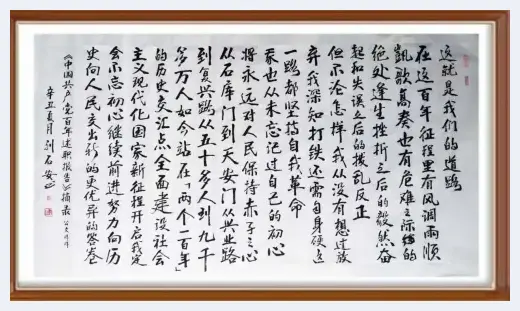 这就是我们的道路
在这百年征程里有风调雨顺
凯歌高奏也有危难之际的
绝处逢生挫折之后的毅然奋
起和失误之后的拨乱反正
但不论怎样我从没有想过放
弃我深知打铁还需自身硬这
一路都坚持自我革命
我也从未忘记过自己的初心
将永远对人民保持赤子之心
从石库门到天安门从兴业路
到复兴路从五十多人到九千
多万人如今站在「两个一百年」
的历史交汇点全面建设社会
主义现代化国家新征程开启我定
会不忘初心继续前进努力向历
史向人民交出新的更优异的答卷
《中国共产党百年述职报告》摘录
辛丑夏月 刘石安